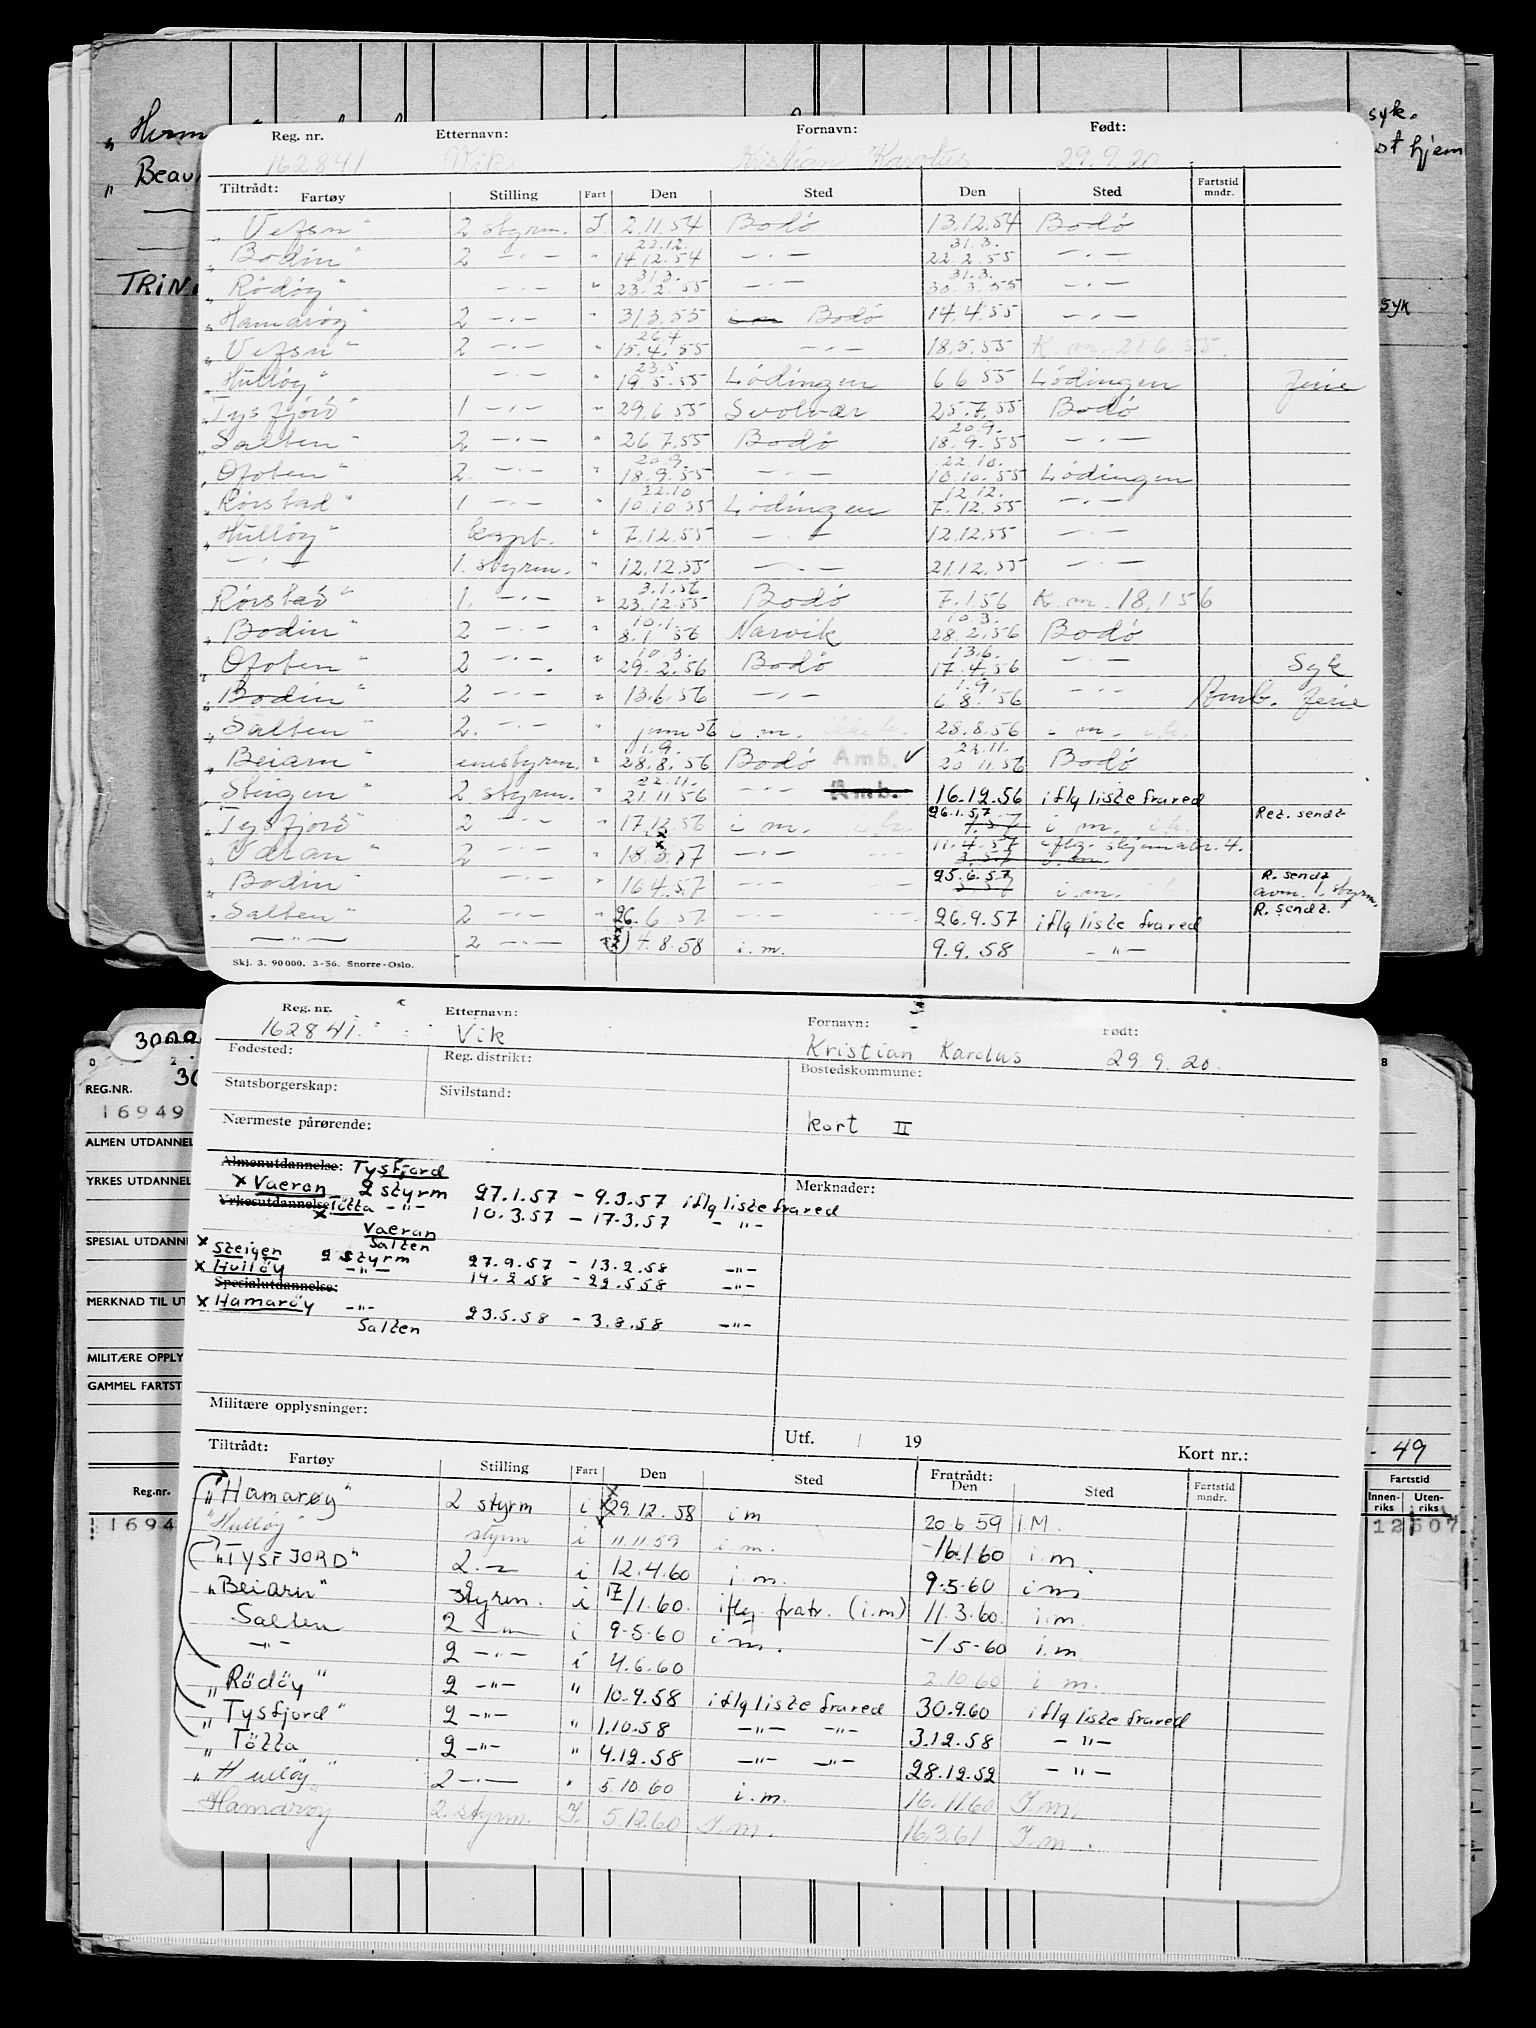 „ Herm
syk.
„ Beau
st hjem
TRIN
syk
Reg. nr. Etternavn: Fornavn: Født:
162841 Vik Kristian Karolus 29.9.20
Tiltrådt: Fartøy Stilling Fart Den Sted Den Sted Fartstid mndr.
„Vefsn" 2 styrm. I. 2.11.54 Bodö 13.12.54 Bodö
22.12. 31.3.
„Bodin" 2 —·— " 14.12.54 —·— 22.2.55 —·—
31.3. 31.3.
„Rödöy" —·— " 23.2.55 —·— 30.3.55 —·—
„Hamaröy" 2 —·— " 31.3.55 Bodö 14.4.55 —·—
26.4
„Vefsn" 2 —·— " 15.4.55 —·— 18.5.55 K.m. 21.6.55.
23.5
„Hullöy" —·— " 19.5.55 Lödingen 6.6.55 Lödingen ferie
„Tysfjord" 1 —·— " 29.6.55 Svolvær 25.7.55 Bodö
20.9.
„Salten" 2 —·— " 26.7.55 Bodö 18.9.55 —·—
20.9. 22.10.
„Ofoten" 2. —·— " 18.9.55 —·— 10.10.55 Lödingen
22.10 12.12.
„Rörstad" 1 —·— " 10.10.55 Lödingen 7.12.55 —·—
„Hullöy" " 7.12.55 —·— 12.12.55 —·—
—·— 1. styrm. " 12.12.55 —·— 21.12.55 —·—
3.1.56
„Rörstad" 1. —·— " 23.12.55 Bodö 7.1.56 K.m. 18.1.56
10.1. 10.3.
„Bodin" 2 —·— " 8.1.56 Narvik 28.2.56 Bodö
10.3. 13.6.
„Ofoten" 2 —·— " 29.2.56 Bodö 17.4.56 —·— Syk
1.9.
„Bodin" 2 —·— " 13.6.56 —·— 6.8.56 —·— Amb. ferie
„Salten" 2. —·— " juni 56 i.m. 28.8.56 i m.
1.9. 22.11.
„Beiarn" enestyrm. " 28.8.56 Bodö Amb. ✓ 20.11.56 Bodö
22.11.
„Steigen" 2 styrm. " 21.11.56 —·— Amb. 16.12.56 iflg liste fra red
„Tysfjord" 2 —·— " 17.12.56 i m. 26.1.57 i m. Ret. sendt
„Væran" 2 —·— " 18.3.57 —·— 11.4.57 iflg. skjema nr. 4.
„Bodin" —·— " 16.4.57 —·— 25.6.57 i.m. R. sendt
avm. 1. styrm.
„Salten" 2 —·— " 26.6.57 —·— 26.9.57 iflg liste fra red R. sendt.
—"— 2 —·— 4.8.58 i.m. 9.9.58 —"—
Skj. 3. 90000. 3-56. Snorre-Oslo.
Reg. nr. Etternavn: Fornavn: Født:
162841. Vik Kristian Karolus 29.9.20.
Fødested: Reg. distrikt: Bostedskommune:
Statsborgerskap: Sivilstand:
Nærmeste pårørende: kort II
Almenutdannelse: Tysfjord
x Væran 2 styrm 27.1.57 - 9.3.57 iflg liste fra red Merknader:
Yrkesutdannelse x Tötta -"- 10.3.57 - 17.3.57 -"-
Væran
Salten
x Steigen 2 styrm 27.9.57 - 13.2.58 -"-
x Hullöy -"- 14.2.58 - 22.5.58 -"-
Spesialutdannelse:
x Hamaröy -"- 23.5.58 - 3.8.58 -"-
Salten
Militære opplysninger:
Utf. / 19 Kort nr.:
Tiltrådt: Fartøy Stilling Fart Den Sted Fratrådt: Den Sted Fartstid mndr.
„Hamarøy" 2 styrm i 29.12.58 i m 20.6.59 I.M.
"Hulløy" styrm i 11.11.59 i.m. -16.1.60 i.m.
„TYSFJORD" 2. — i 12.4.60 i.m. 9.5.60 im
„Beiarn" styrm. i /1.60. iflg. fratr. (i.m) 11.3.60. i.m.
Salten 2 —"— i 9-5-60 im. -/5-60 i.m.
—"— 2 —·— i 4.6.60 2.10.60 i m.
„Rödöy" 2 —"— " 10.9.58 iflg liste fra red 30.9.60 iflg liste fra red
„Tysfjord" 2 —"— " 1.10.58 —"— —"— 3.12.58 —"—
„Tötta 2 —"— " 4.12.58 —"— —"— 28.12.52 —"—
„Hulløy" 2 —·— " 5.10.60 i.m. 16.11.60 I.m.
Hamarøy 2. styrm. I. 5.12.60 I.m. 16.3.61 I.m.
3000
REG.NR.
16949
ALMEN UTDANNEL
YRKES UTDANNEL
SPESIAL UTDANNE
MERKNAD TIL UT
MILITÆRE OPPLY
GAMMEL FARTST
- 49
Reg.nr. Fartstid
Innenriks Utenriks
1694 12507